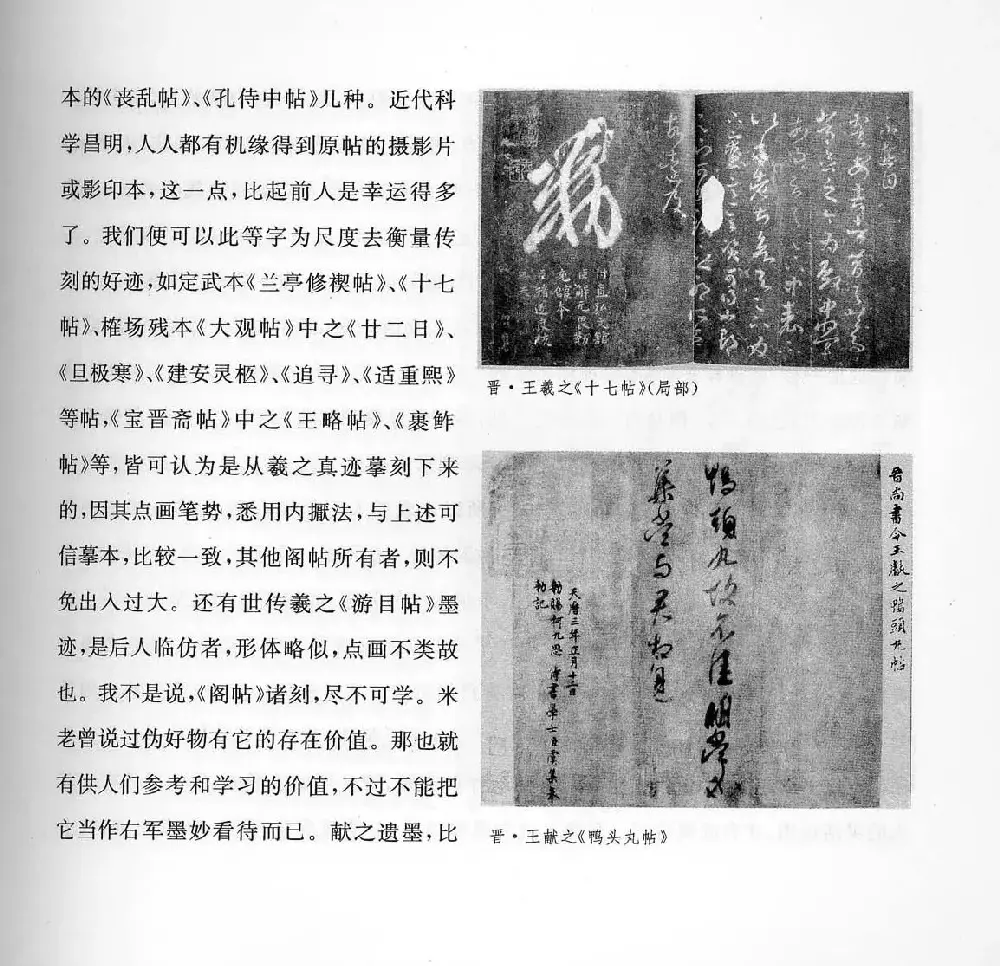 本的《丧乱帖》、《孔侍中帖》几种。近代科
学昌明,人人都有机缘得到原帖的摄影片
或影印本,这一点,比起前人是幸运得多
了。我们便可以此等字为尺度去衡量传
刻的好迹,如定武本《兰亭修禊帖》、《十七
帖》、榷场残本《大观帖》中之《廿二日》、
《旦极寒》、《建安灵柩》、《追寻》、《适重熙》
等帖,《宝晋斋帖》中之《王略帖》、《裹鲊
帖》等,皆可认为是从羲之真迹摹刻下来
的,因其点画笔势,悉用内擫法,与上述可
信摹本,比较一致,其他阁帖所有者,则不
免出入过大。还有世传羲之《游目帖》墨
迹,是后人临仿者,形体略似,点画不类故
也。我不是说,《阁帖》诸刻,尽不可学。米
老曾说过伪好物有它的存在价值。那也就
有供人们参考和学习的价值,不过不能把
它当作右军墨妙看待而已。献之遗墨,比
晋·王羲之《十七帖》(局部)
晋尚书令王献之鸭头丸帖
鸭头丸故不佳明当必
集当与君相见
天历三年正月十二日
敕赐柯九思
侍书学士臣虞集奉
敕记
晋·王献之《鸭头丸帖》